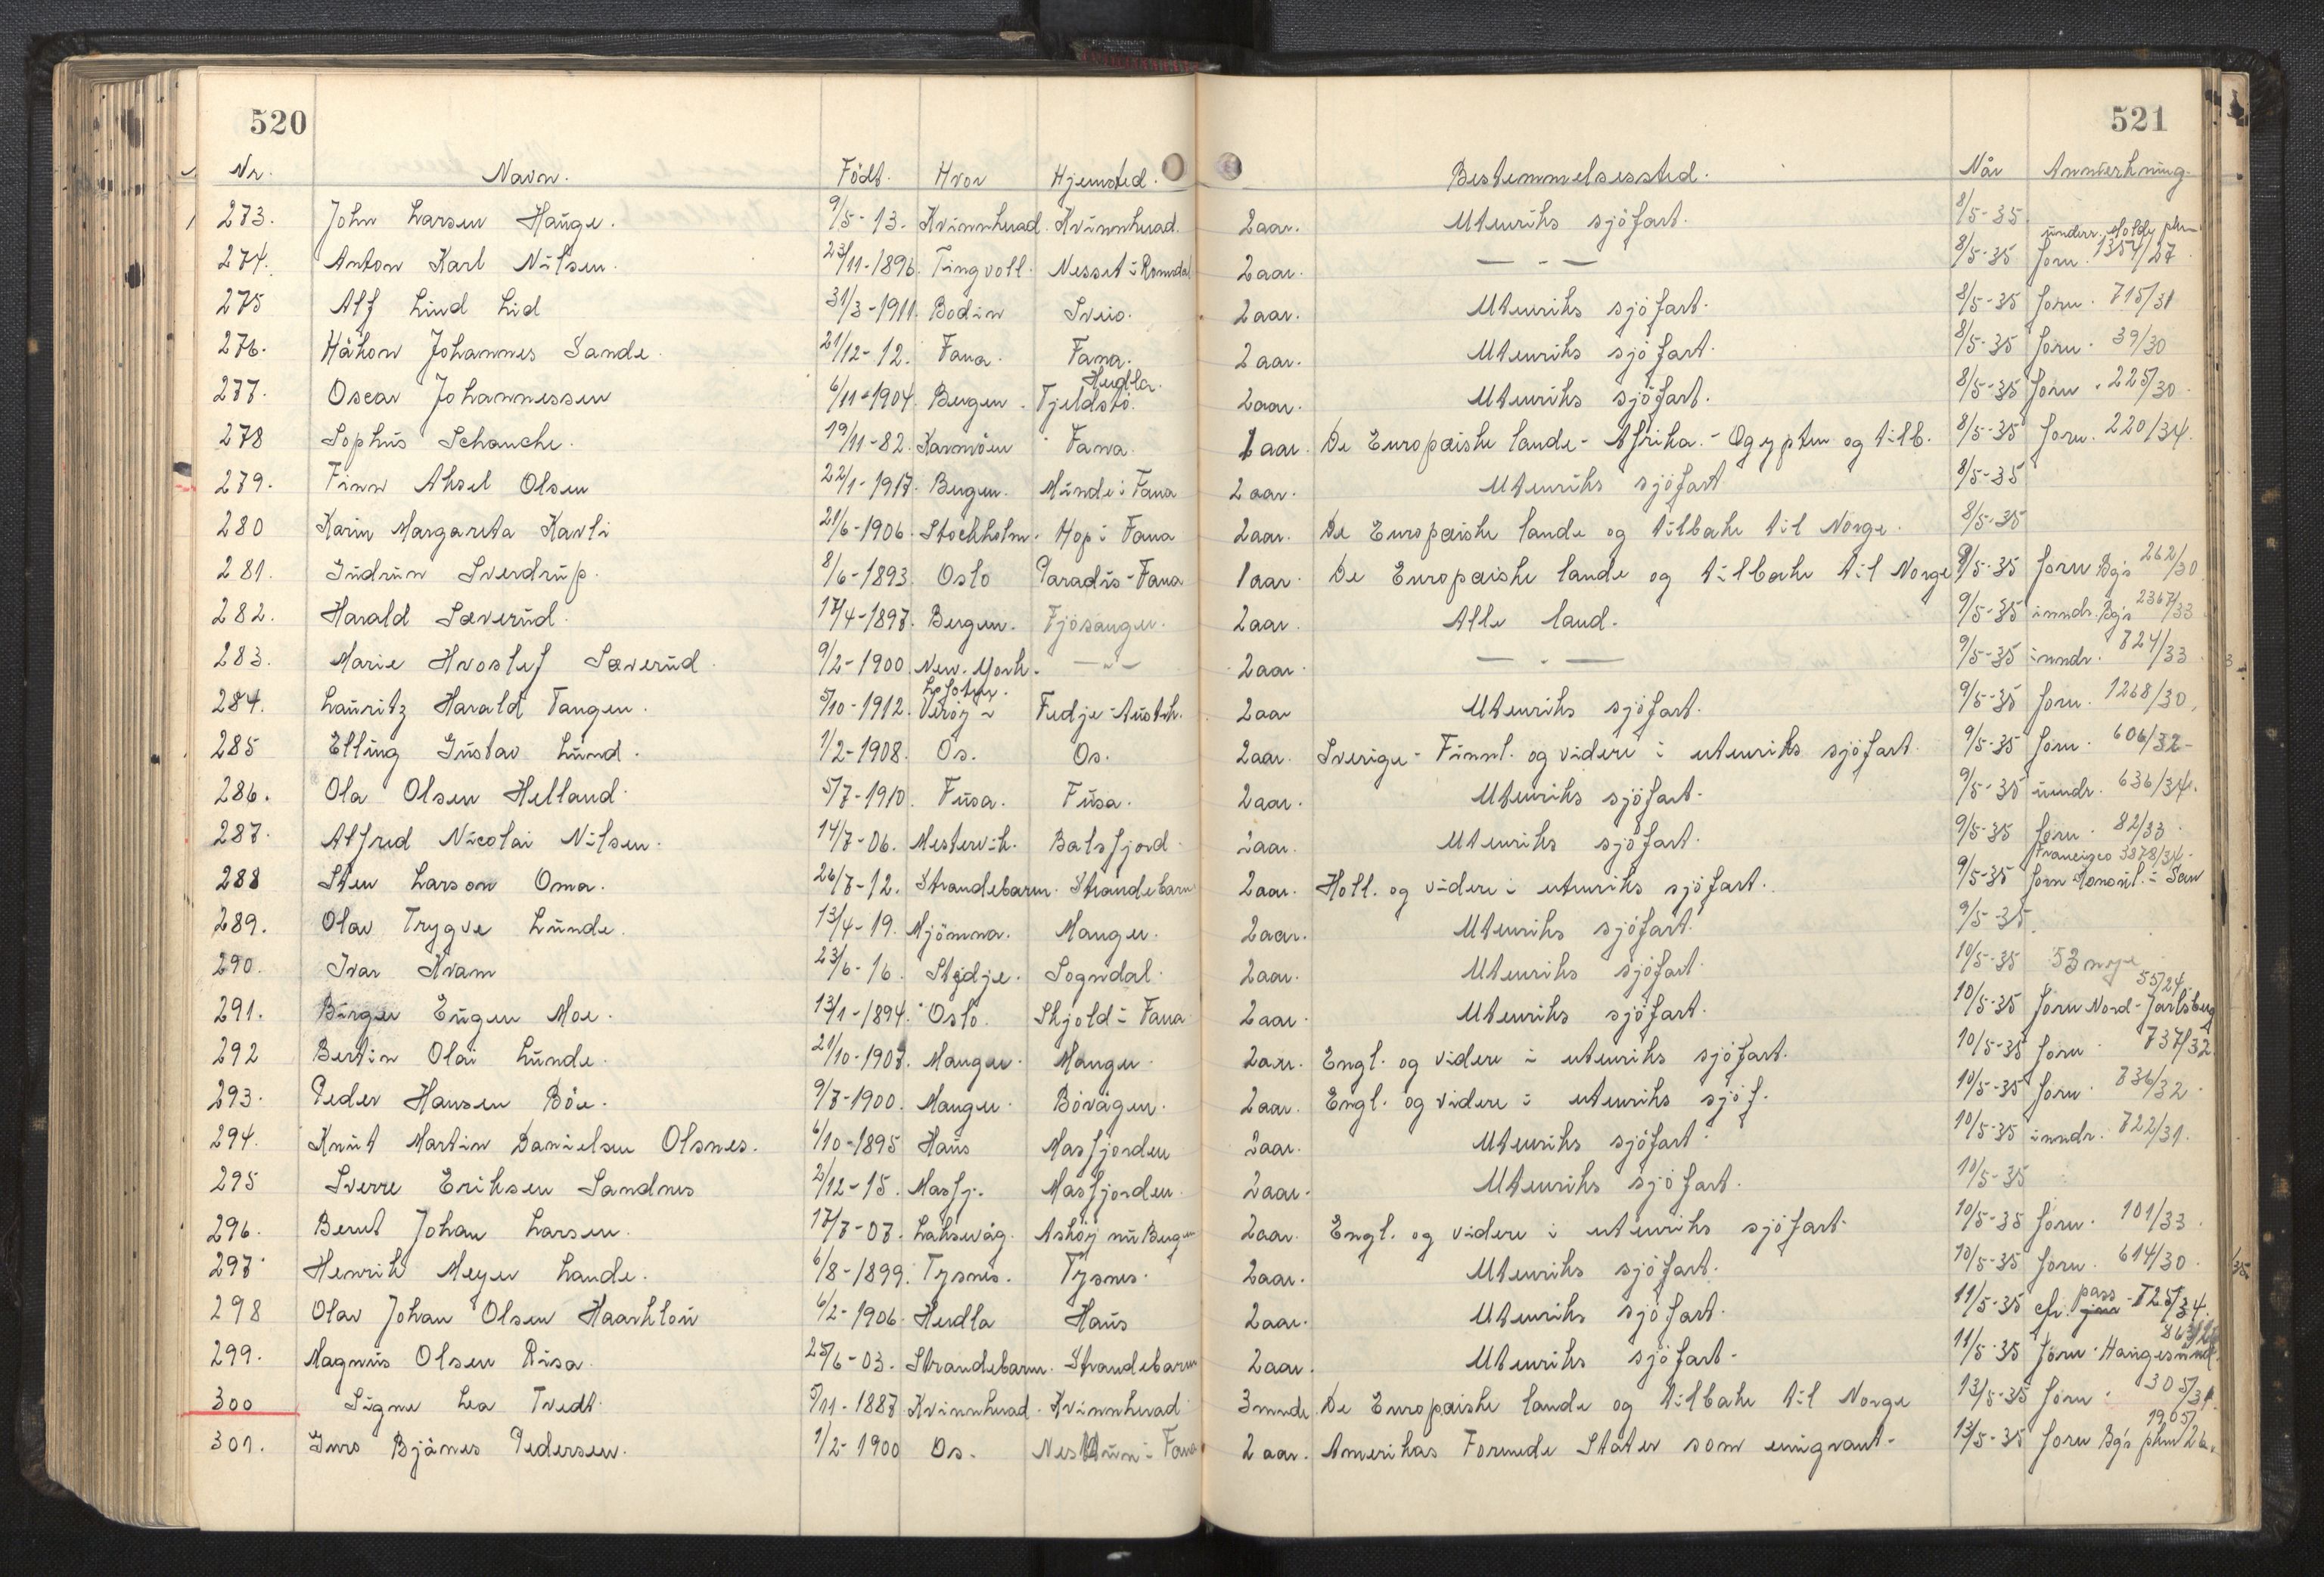 520
521
Nr. Navn. Född. Hvor Hjemsted. Bestemmelsessted. Når Anmerkning.
273. John Larsen Hauge. 9/5-13. Kvinnherad. Kvinnherad. 2 aar. Utenriks sjöfart. 8/5-35.
274. Anton Karl Nilsen. 23/11-1896. Tingvoll. Nesset i Romsdal 2 aar. — " — 8/5-35 forn. 1354/27
275 Alf Lind Lid 31/3-1911. Bodin Sveio. 2 aar. Utenriks sjöfart. 8/5-35 forn. 715/31
276. Håkon Johannes Sande. 21/12-12. Fana. Fana. 2 aar. Utenriks sjöfart. 8/5-35 forn. 39/30
Herdla.
277. Oscar Johannessen 6/11-1904. Bergen. Tjeldstö. 2 aar. Utenriks sjöfart. 8/5-35 forn. 225/30.
278 Sophus Schanche. 19/11-82. Karmöen Fana. 1 aar. De Europæiske lande - Afrika. - Ogypten og tilb. 8/5-35 forn. 220/34.
279. Finn Aksel Olsen 22/1-1917. Bergen. Minde i Fana 2 aar. Utenriks sjöfart 8/5-35
280 Karin Margareta Kavli 21/6-1906. Stockholm. Hop i Fana 2 aar. De Europæiske lande og tilbake til Norge. 8/5-35
281. Gudrun Sverdrup. 8/6-1893. Oslo Paradis - Fana 1 aar. De Europæiske lande og tilbake til Norge 9/5-35 forn Bg's 262/30
282. Harald Sæverud. 17/4-1897. Bergen. Fjösanger. 2 aar. Alle land. 9/5-35 inndr. Bg's 2367/33
283. Marie Hvoslef Sæverud. 9/2-1900 New-York. — " — 2 aar. — " — 9/5-35 inndr. 824/33
Lofoten.
284. Lauritz Harald Tangen. 5/10-1912. Veröy i Fedje - Austrh. 2 aar Utenriks sjöfart. 9/5-35 forn. 1268/30.
285 Elling Gustav Lund. 1/2-1908. Os. Os. 2 aar. Sverige - Finnl. og videre i utenriks sjöfart. 9/5-35 forn. 606/32-
286. Ola Olsen Helland. 5/7-1910. Fusa. Fusa. 2 aar. Utenriks sjöfart. 9/5-35 inndr. 636/34.
287. Alfred Nicolai Nilsen. 14/7-06. Mestervik. Balsfjord. 2 aar. Utenriks sjöfart. 9/5-35 forn. 82/33.
Francisco 3878/34.
288 Sten Larson Oma. 26/7-12. Strandebarm. Strandebarm 2 aar. Holl. og videre i utenriks sjöfart. 9/5-35 forn Konsul. i San
289. Olav Trygve Lunde. 13/4-19. Mjömna. Manger. 2 aar. Utenriks sjöfart. 9/5-35.
290. Ivar Kvam 23/6-16. Stedje. Sogndal. 2 aar. Utenriks sjöfart. 10/5-35
55/24.
291. Birger Eugen Moe. 13/1-1894. Oslo. Skjold i Fana 2 aar. Utenriks sjöfart. 10/5-35 forn Nord-Jarlsberg
292 Bertin Olai Lunde. 21/10-1907. Manger. Manger. 2 aar. Engl. og videre i utenriks sjöfart. 10/5-35 forn. 737/32.
293. Peder Hansen Böe. 9/7-1900. Manger. Bövågen. 2 aar. Engl. og videre i utenriks sjöf. 10/5-35 forn 736/32.
294. Knut Martin Danielsen Olsnes. 6/10-1895 Haus Masfjorden 2 aar. Utenriks sjöfart. 10/5-35 inndr. 722/31.
295 Sverre Eriksen Sandnes 2/12-15. Masfj. Masfjorden. 2 aar. Utenriks sjöfart. 10/5-35
296. Bernt Johan Larsen. 17/7-07. Laksevåg. Asköy nu Bergen 2 aar. Engl. og videre i utenriks sjöfart. 10/5-35 forn. 101/33.
297. Henrik Meyer Lande. 6/8-1899. Tysnes. Tysnes. 2 aar. Utenriks sjöfart. 10/5-35 forn. 614/30.
pass
298 Olav Johan Olsen Haarklou 6/2-1906. Herdla Haus 2 aar. Utenriks sjöfart. 11/5-35 cfr. 725/34.
299. Magnus Olsen Risa. 25/6-03. Strandebarm. Strandebarm 2 aar. Utenriks sjöfart. 11/5-35 forn. Haugesund.
300 Signe Lea Tvedt. 5/11-1887 Kvinnherad. Kvinnherad 3 mnde. De Europæiske lande og tilbake til Norge 13/5-35 forn. 305/31.
1905/
301. Jens Bjånes Pedersen. 1/2-1900 Os. Nesttun i Fana 2 aar. Amerikas Forenede Stater som emigrant. 13/5-35 forn Bg's pkm 26.